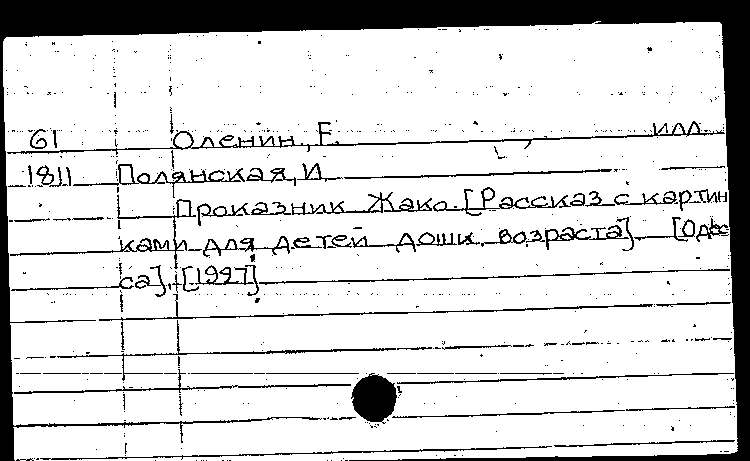 61 Оленин, Е. илл.
1811 Полянская, И.
Проказник Жако. [Рассказ с картин
ками для детей дошк. возраста]. [Одес
са], [1927]